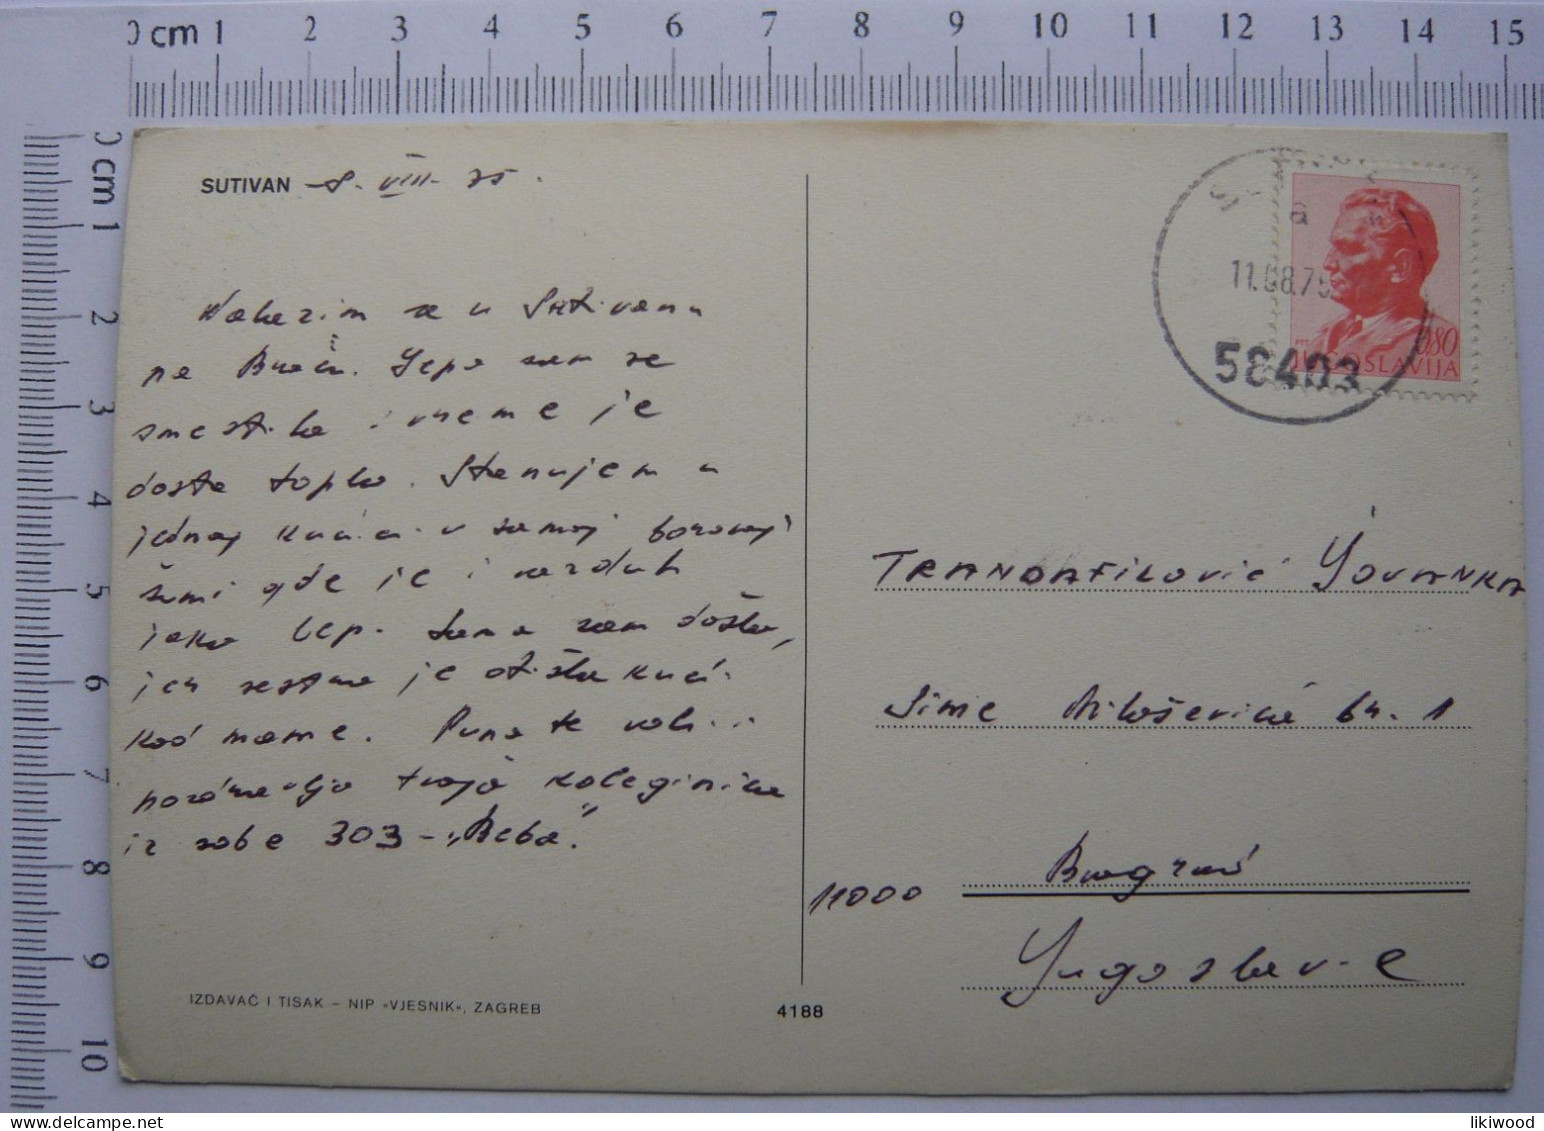 0 cm 1 2 3 4 5 6 7 8 9 10 11 12 13 14 15
0 cm 1 2 3 4 5 6 7 8 9 10
SUTIVAN 8. VIII. 75.
Nalazim se u Sutivanu
na Braču. Lepo sam se
smestila i vreme je
dosta toplo. Stanujem u
jednoj kućici u samoj borovoj
šumi gde je i vazduh
jako lep. Sama sam došla,
jer sestra je otišla kući
kod mame. Puno te voli i
pozdravlja tvoja koleginica
iz sobe 303 - „Beba".
IZDAVAČ I TISAK – NIP «VJESNIK», ZAGREB
4188
11.08.75
58403
0,80
JUGOSLAVIJA
TRANDAFILOVIĆ JOVANKA
Sime Miloševića br. 1
11000 Beograd
Yugoslavie
www.delcampe.net
likiwood